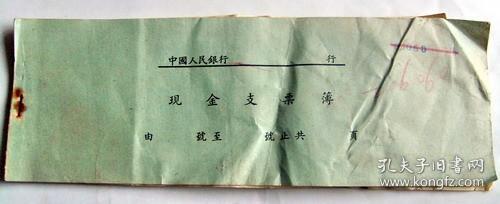 中國人民銀行 行
现金支票簿
由 號至 號止共 頁
孔夫子旧书网
www.kongfz.com